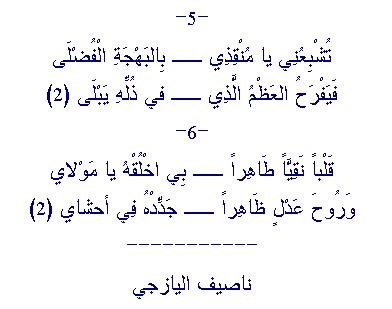 -5-
تُشْبِعُنِي يا مُنْقِذِي ـــــ بِالبَهْجَةِ الْفُضْلَى
فَيَفْرَحُ العَظْمُ الَّذِي ـــــ في ذُلِّهِ يَبْلَى (2)
-6-
قَلْباً نَقِيَّاً طَاهِراً ـــــ بِي اخْلُقْهُ يا مَوْلاي
وَرُوحَ عَدْلٍ ظَاهِراً ـــــ جَدِّدْهُ فِي أحشاي (2)
-----------
ناصيف اليازجي